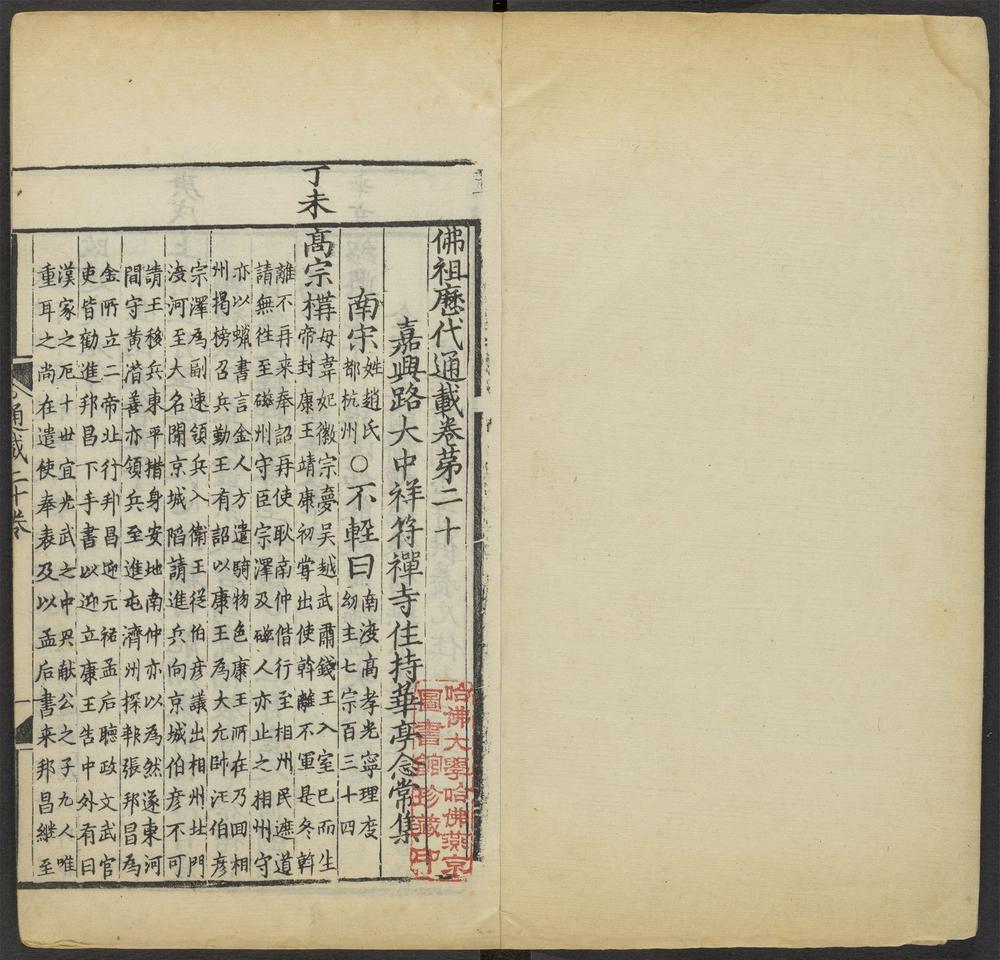 佛祖歷代通載卷第二十
嘉興路大中祥符禪寺住持華亭念常集
南宋姓趙氏
都杭州○不輊曰南渡高孝光寧理度
幼主七宗百三十四
丁未
高宗構帝母韋妃徽宗夢吳越武肅錢王入室已而生
封康王靖康初嘗出使斡離不軍是冬斡
離不再來奉詔再使耿南仲偕行至相州民遮道
請無徃至磁州守臣宗澤及磁人亦止之相州守
亦以蠟書言金人方遣騎物色康王所在乃回相
州揭榜召兵勤王有詔以康王爲大元帥汪伯彥
宗澤爲副速領兵入衛王從伯彥議出相州北門
渡河至大名聞京城陷請進兵向京城伯彥不可
請王移兵東平措身安地南仲亦以爲然遂東河
間守黃潛善亦領兵至進屯濟州探報張邦昌爲
金所立二帝北行邦昌迎元祐孟后聽政文武官
吏皆勸進邦昌下手書以迎立康王告中外有曰
漢家之厄十世宜光武之中興献公之子九人唯
重耳之尚在遣使奉表及以孟后書来邦昌継至
通載二十卷
哈佛大學哈佛燕京
圖書館珍藏印